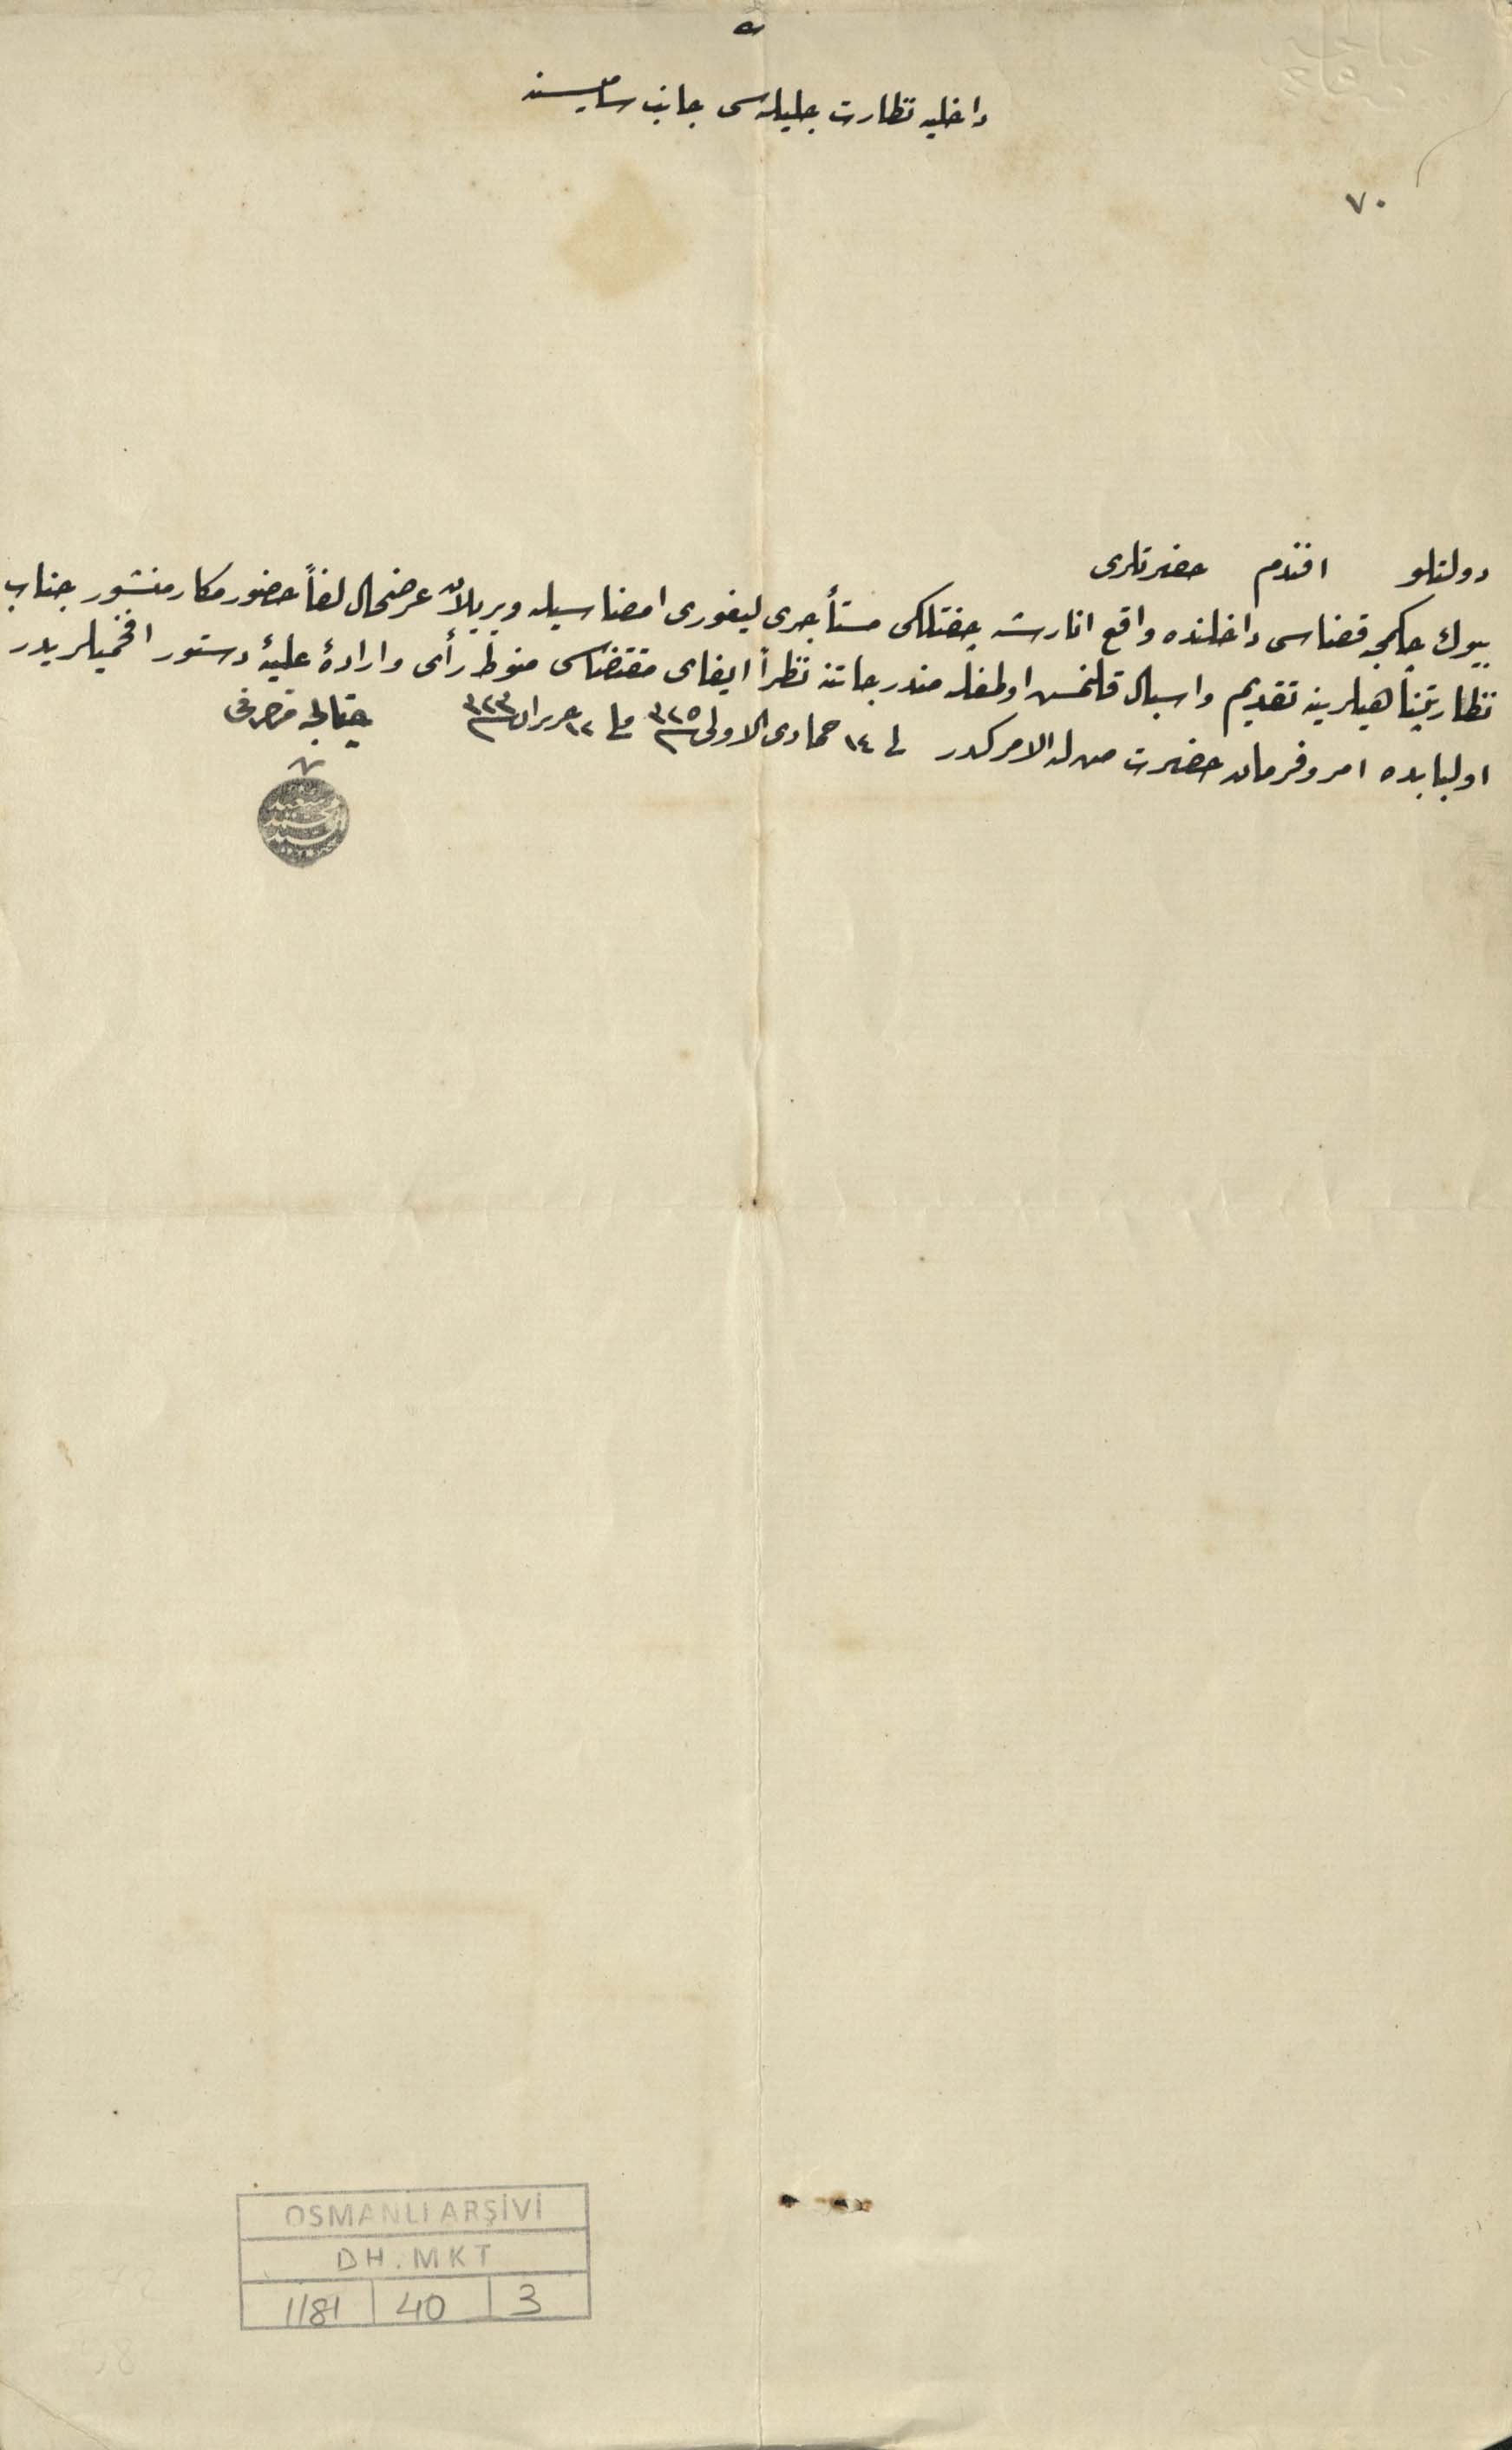 داخلیه نظارت جلیله‌سی جانب سامیسنه
٧٠
دولتلو افندم حضرتلری
بیوك چكمجه قضاسی داخلنده واقع انارشه چفتلكی مستأجری لیغوری امضاسیله ویریلان عرضحال لفاً حضور مكارمنشور جناب
نظارتپناهیلرینه تقدیم واسبال قلنمش اولمغله مندرجاتنه نظراً ایفای مقتضاسی منوط رأی وارادهٔ علیهٔ دستور افخمیلریدر
اولبابده امر وفرمان حضرت من له الامركدر فی ١٤ جمادی الاولی ٣٢٥ و فی ١٢ حزیران ٣٢٣
چتالجه متصرفی
OSMANLI ARŞİVİ
DH. MKT
1181 40 3